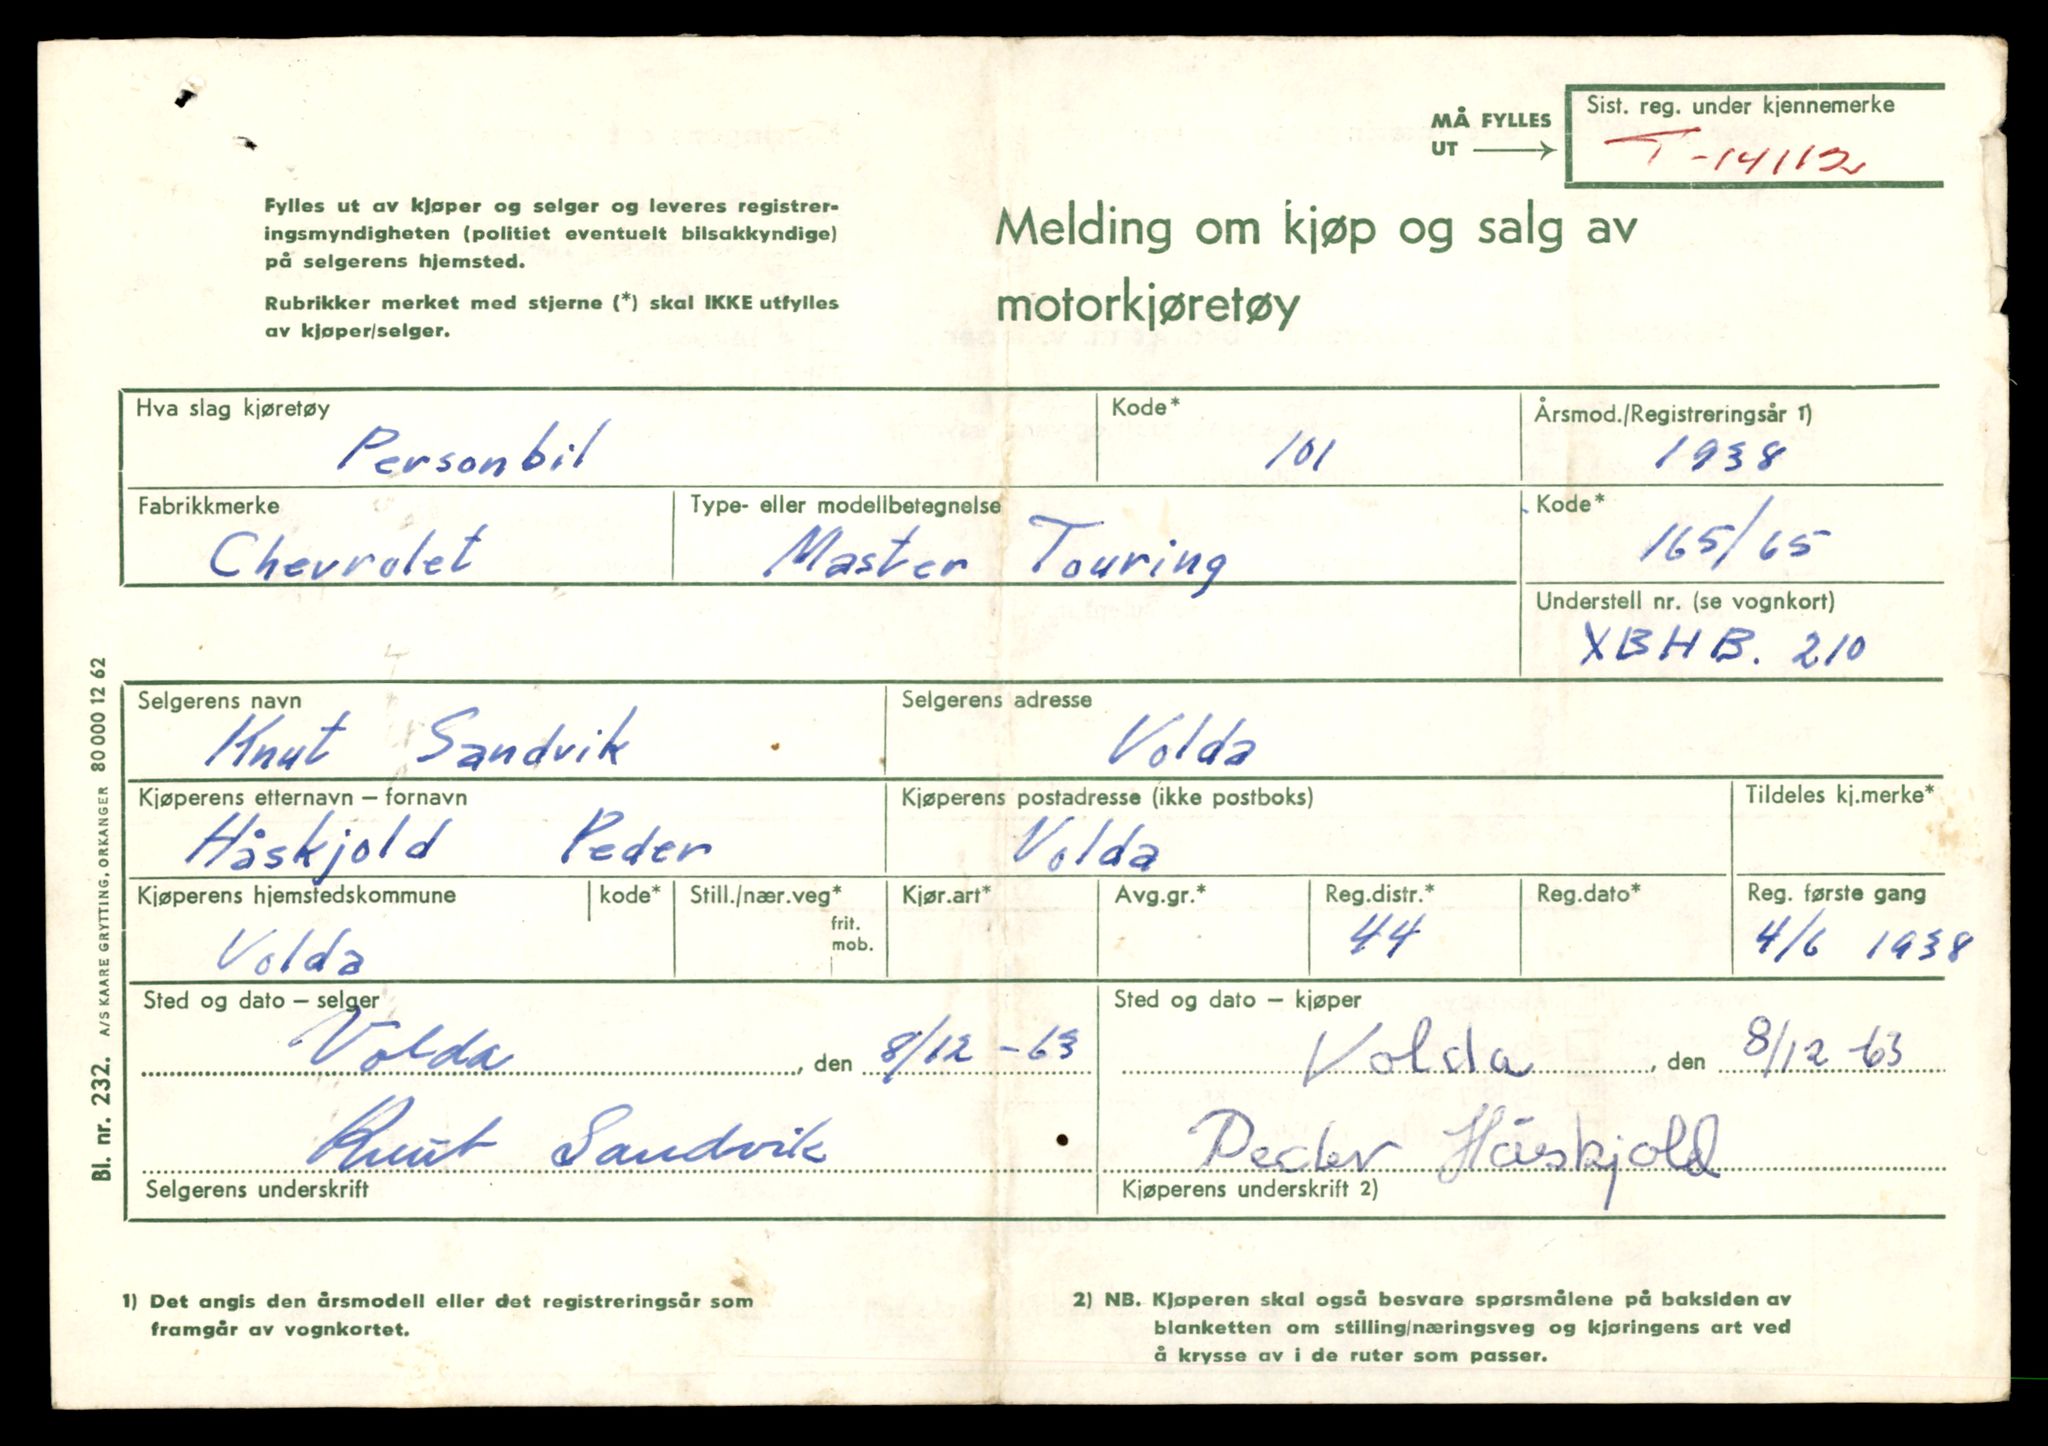 MÅ FYLLES
UT
Sist. reg. under kjennemerke
T-14112
Fylles ut av kjøper og selger og leveres registrer-
ingsmyndigheten (politiet eventuelt bilsakkyndige)
på selgerens hjemsted.
Rubrikker merket med stjerne (*) skal IKKE utfylles
av kjøper/selger.
Melding om kjøp og salg av
motorkjøretøy
Hva slag kjøretøy
Personbil
Kode*
101
Årsmod./Registreringsår 1)
1938
Fabrikkmerke
Chevrolet
Type- eller modellbetegnelse
Master Touring
Kode*
165/65
Understell nr. (se vognkort)
XBHB. 210
Selgerens navn
Knut Sandvik
Selgerens adresse
Volda
Kjøperens etternavn – fornavn
Håskjold Peder
Kjøperens postadresse (ikke postboks)
Volda
Tildeles kj.merke*
Kjøperens hjemstedskommune
Volda
kode*
Still./nær.veg*
frit.
mob.
Kjør.art*
Avg.gr.*
Reg.distr.*
44
Reg.dato*
Reg. første gang
4/6 1938
Sted og dato – selger
Volda, den 8/12 - 63
Knut Sandvik
Selgerens underskrift
Sted og dato – kjøper
Volda, den 8/12 -63
Peder Håskjold
Kjøperens underskrift 2)
1) Det angis den årsmodell eller det registreringsår som
framgår av vognkortet.
2) NB. Kjøperen skal også besvare spørsmålene på baksiden av
blanketten om stilling/næringsveg og kjøringens art ved
å krysse av i de ruter som passer.
Bl. nr. 232. A/S KAARE GRYTTING, ORKANGER 80 000 12 62